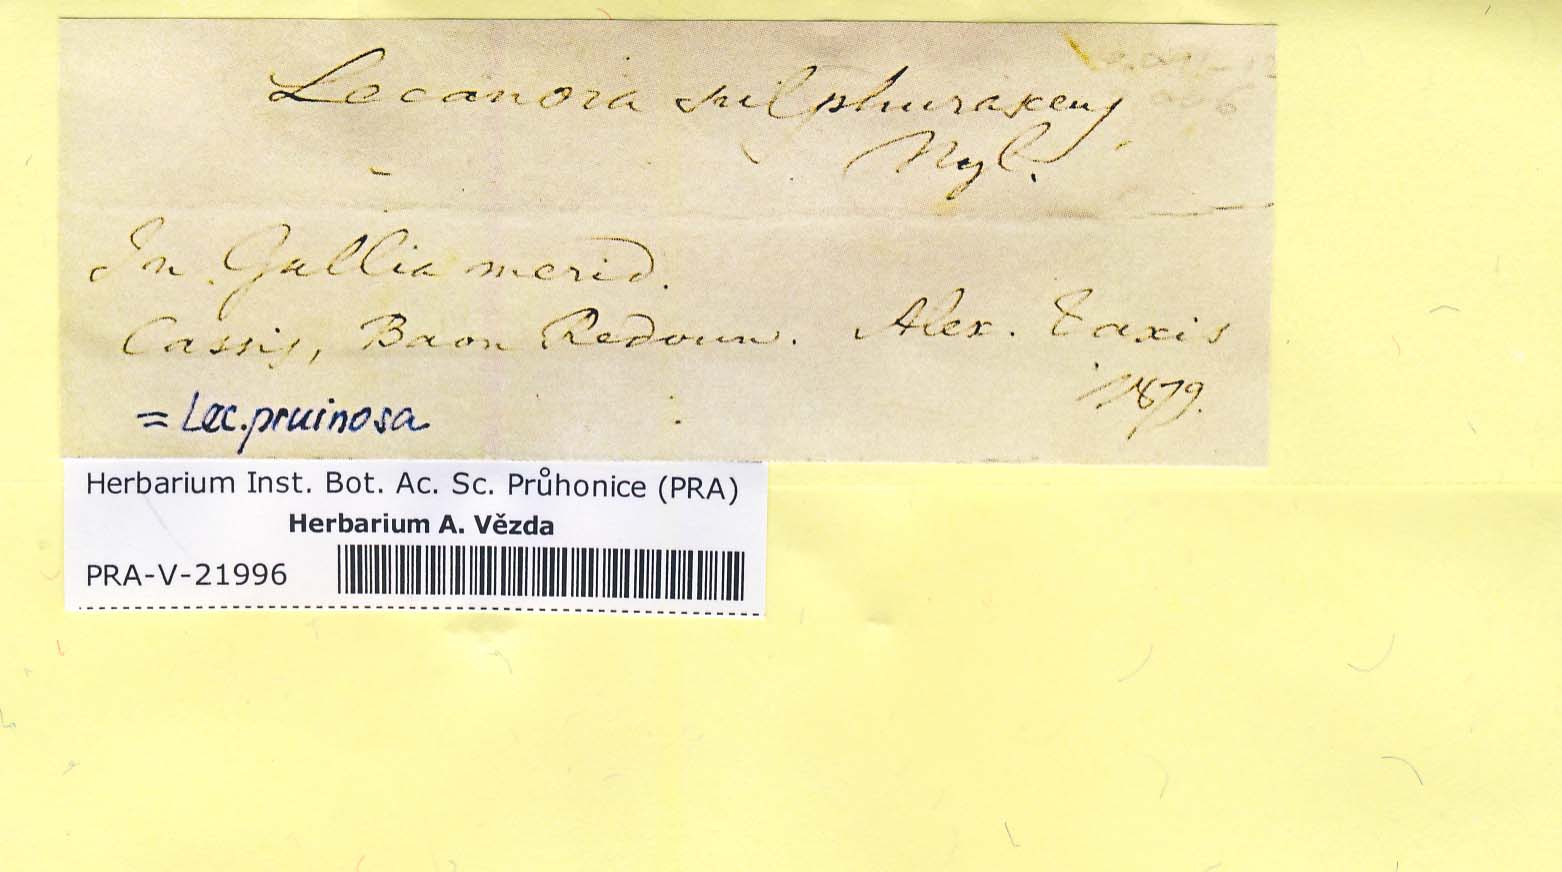 Lecanora sulphurascens
Nyl.
In Gallia merid.
Cassis, Baon Redoun. Alex. Taxis
1879.
= Lec. pruinosa
Herbarium Inst. Bot. Ac. Sc. Průhonice (PRA)
Herbarium A. Vězda
PRA-V-21996